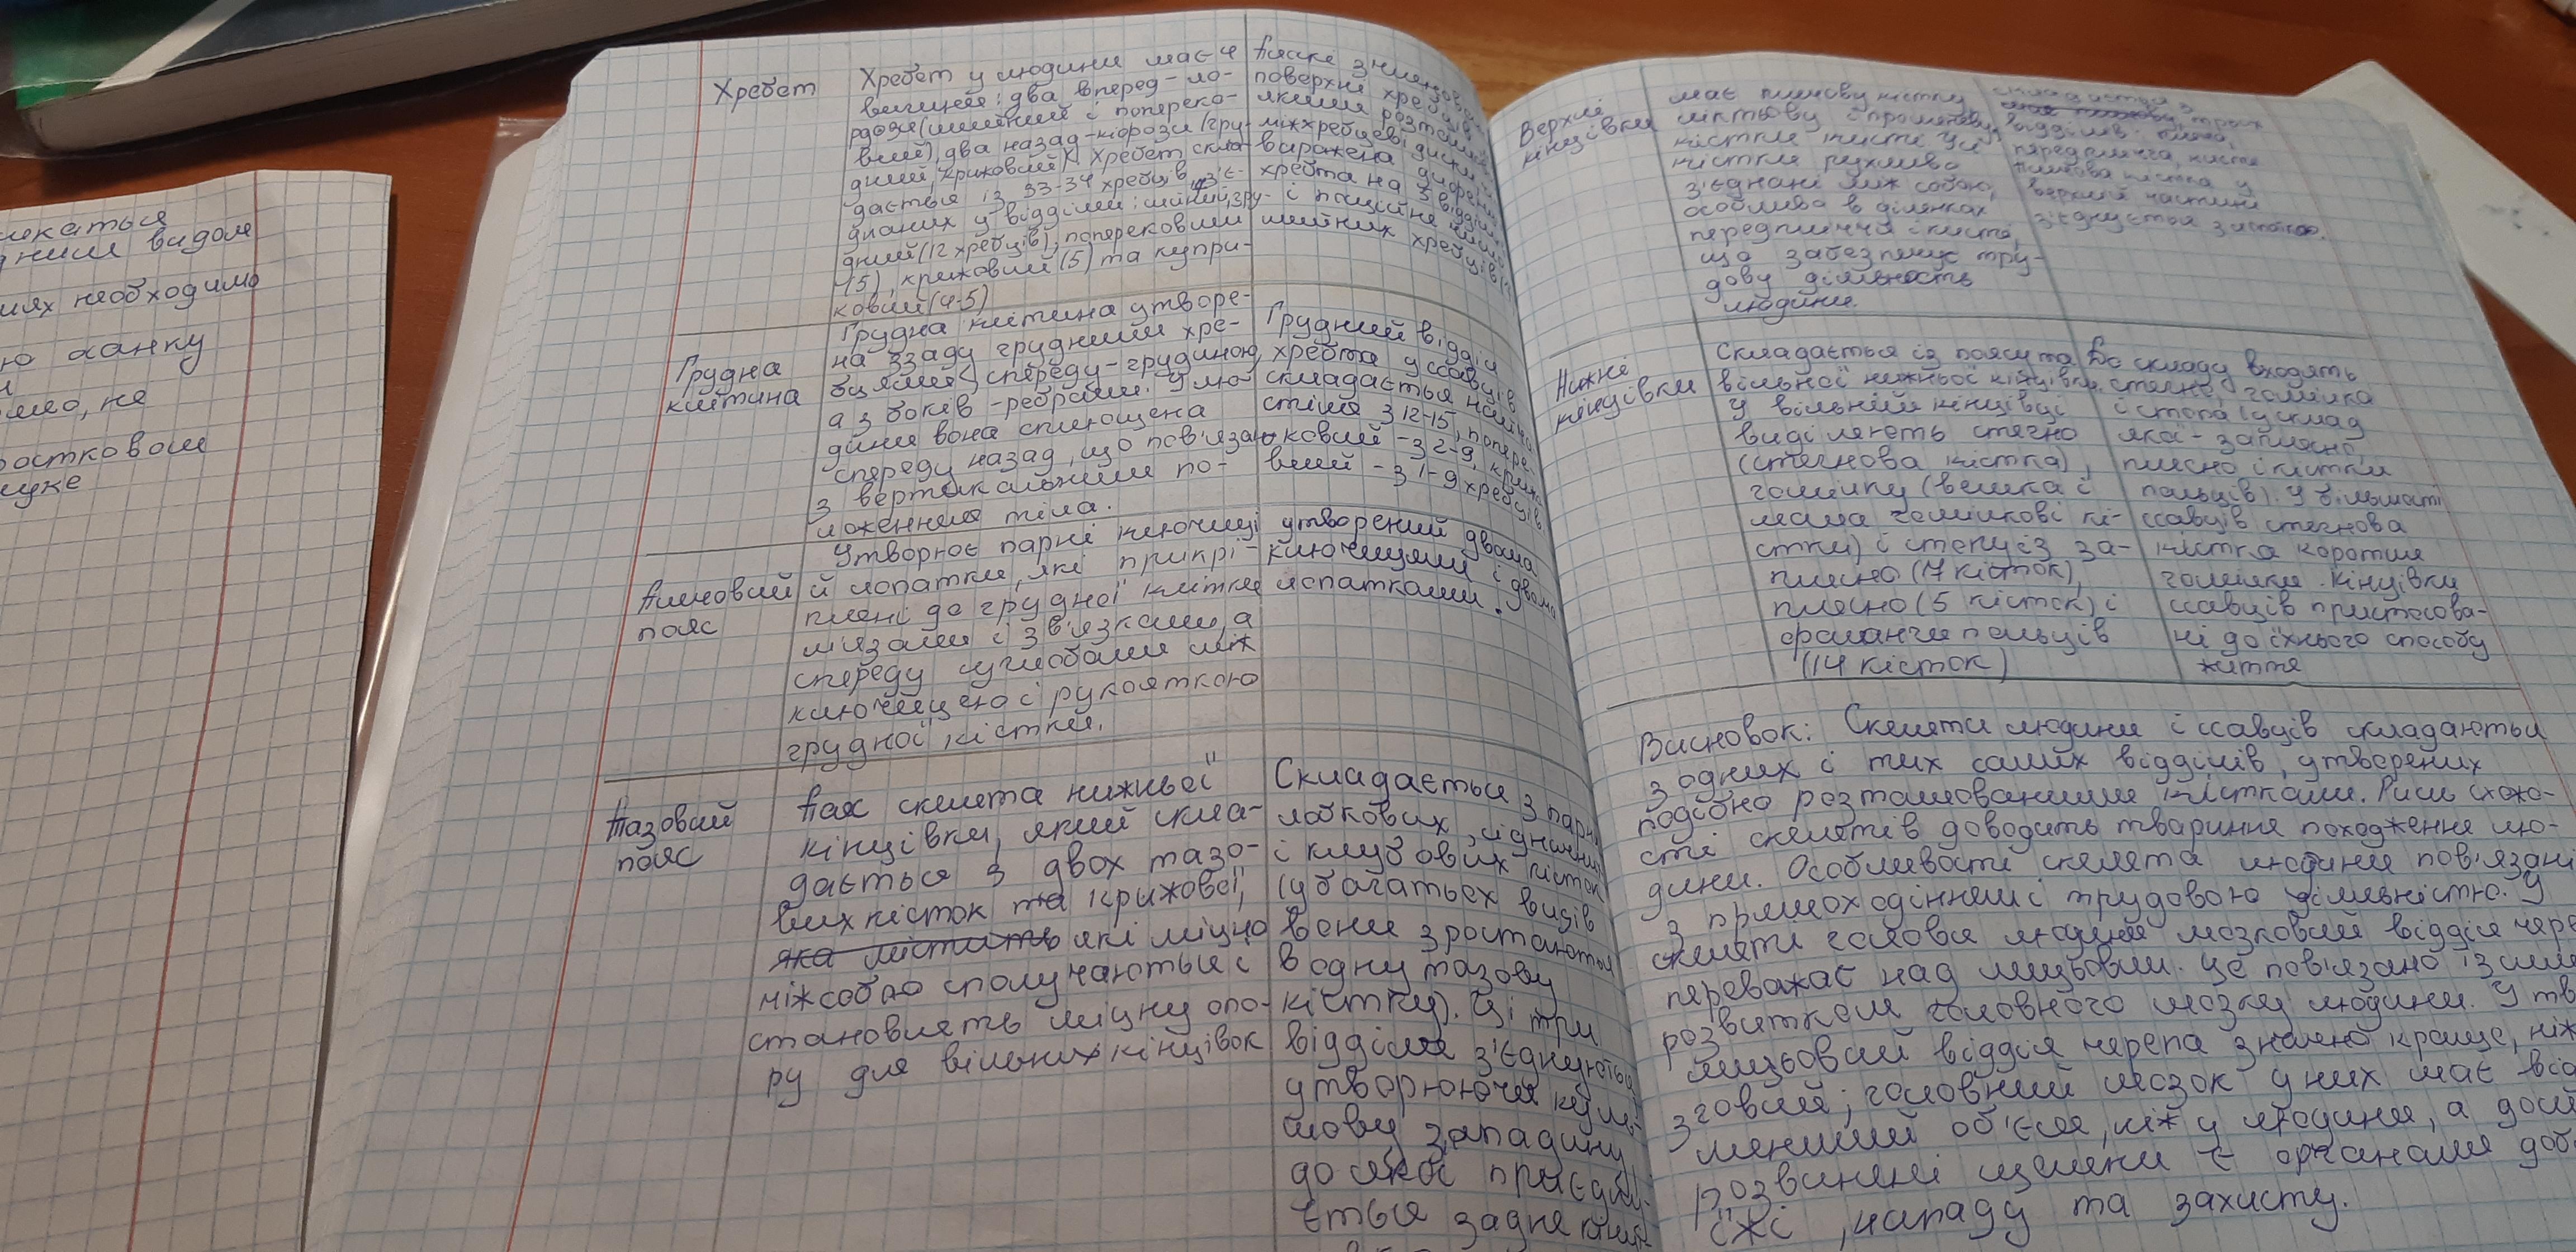 икаться
дним видом
иях необходимо
ю ланку
ямо, не
остковом
шуке
Хребет
Хребет у людини має 4
вигини: два вперед - ло-
рдози (шийний і попереко-
вий), два назад - кіфози (гру-
дний, крижовий). Хребет скла-
дається із 33-34 хребців з'є-
днаних у відділи: шийний, гру-
дний (12 хребців), поперековий
(5), крижовий (5) та купри-
ковий (4-5)
Пласкі зчленов
поверхні хребців
якими розташ
міжхребцеві диски
виражена
хребта на 5 відділ
і постійне число
шийних хребців
Грудна
клітина
Грудна клітина утворе-
на ззаду грудними хре-
бцями, спереду - грудиною,
а з боків - ребрами. У лю-
дини вона сплющена
спереду назад, що пов'язано
з вертикальним по-
ложенням тіла.
Грудний відділ
хребта у ссавців
складається найча
стіше з 12-15, попере-
ковий - з 2-9, крижо
вий - з 1-9 хребців
Плечовий
пояс
Утворює парні ключиці
й лопатки, які прикрі-
плені до грудної клітки
м'язами і зв'язками, а
спереду суглобами між
ключицею і рукояткою
грудної кістки.
утворений двома
ключицями і двома
лопатками.
Тазовий
пояс
Пах скелета нижньої
кінцівки, який скла-
дається з двох тазо-
вих кісток та крижової,
яка містить які міцно
між собою сполучаються і
становлять міцну опо-
ру для вільних кінцівок
Складається з парн
лобкових, сідничних
і клубових кісток
(у багатьох видів
вони зростаються
в одну тазову
кістку). Ці три
відділи з'єднуються
утворюючи куль-
шову западину
до якої приєдну-
ється задня кінці
Верхні
кінцівки
має плечову кістку
ліктьову і променеву,
кістки кисті. Усі
кістки рухливо
з'єднані між собою,
особливо в ділянках
передпліччя і кисті,
що забезпечує тру-
дову діяльность
людини.
складається з
трьох
відділів: плечо,
передпліччя, кисть
Плечова кістка у
верхній частині
з'єднується з лопаткою.
Нижні
кінцівки
Складається із поясу та
вільної нижньої кінцівки.
У вільній кінцівці
виділяють стегно
(стегнова кістка),
гомілку (велика і
мала гомілкові кі-
стки) і стопу із за-
плесно (7 кісток),
плесно (5 кісток) і
фаланги пальців
(14 кісток)
До складу входять
стегно, гомілка
і стопа (у склад
якої - заплесно,
плесно і кістки
пальців). У більшості
ссавців стегнова
кістка коротша
гомілки. Кінцівки
ссавців пристосова-
ні до їхнього способу
життя
Висновок: Скелети людини і ссавців складаються
з одних і тих самих відділів, утворених
подібно розташованими кістками. Риси схожо-
сті скелетів доводить тваринне походження лю-
дини. Особливості скелета людини пов'язані
з прямоходінням і трудовою діяльністю. У
скелеті голови людини мозковий відділ чере
переважає над лицьовим. Це пов'язано із
розвитком головного мозку людини. У тв
лицьовий відділ черепа значно краще, ніж
зговий; головний мозок у них має від
менший об'єм, ніж у людини, а
розвинені щелепи є органами доб
їжі, нападу та захисту.